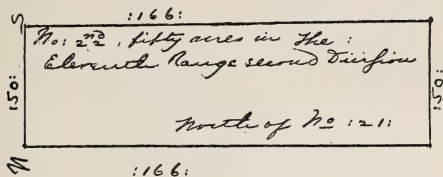 S
:166:
No: 22nd, fifty acres in the :
Eleventh Range second Division
:150:
:150:
North of No :21:
N
:166: